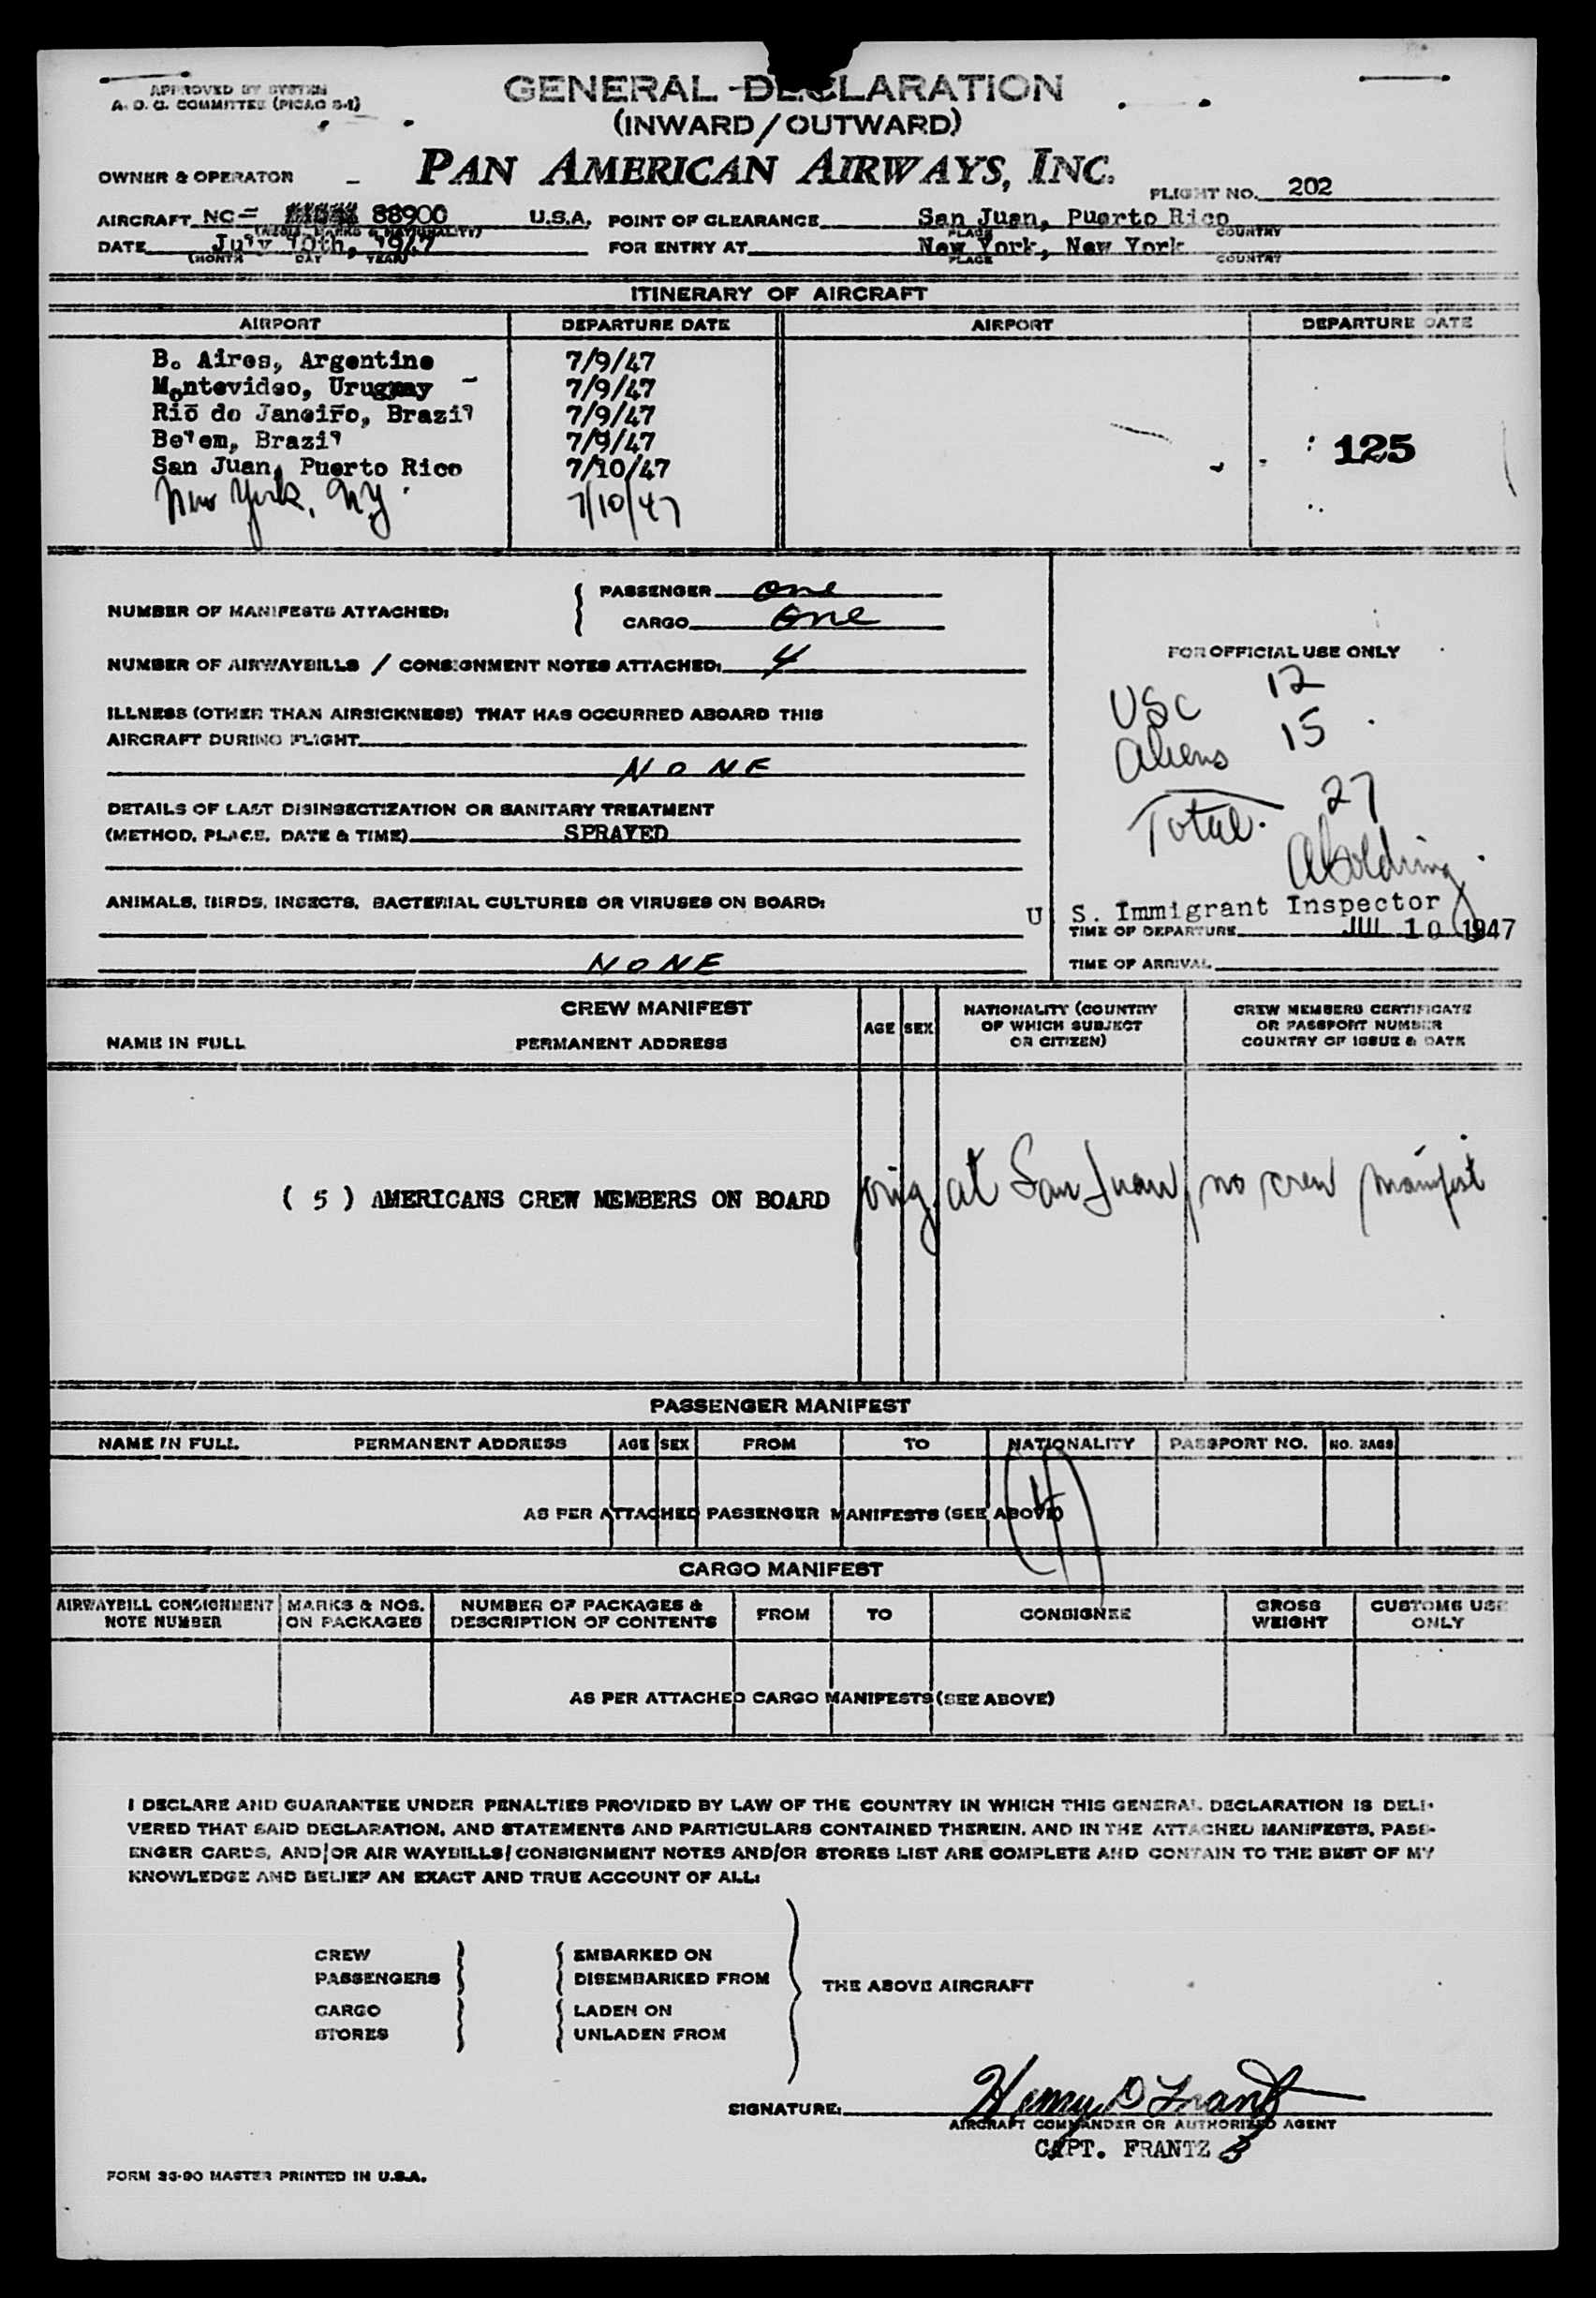 APPROVED BY SYSTEM
A. O. G. COMMITTEE (PICAO S-1)
GENERAL DECLARATION
(INWARD/OUTWARD)
OWNER & OPERATOR - PAN AMERICAN AIRWAYS, INC.
FLIGHT NO. 202
AIRCRAFT NC- 88900 U.S.A. POINT OF CLEARANCE San Juan, Puerto Rico
(REGIS. MARKS & NATIONALITY) PLACE COUNTRY
DATE July 10th, 1947 FOR ENTRY AT New York, New York
(MONTH DAY YEAR) PLACE COUNTRY
ITINERARY OF AIRCRAFT
AIRPORT DEPARTURE DATE AIRPORT DEPARTURE DATE
B. Aires, Argentine 7/9/47
Montevideo, Uruguay - 7/9/47
Rio de Janeiro, Brazil 7/9/47
Belem, Brazil 7/9/47
125
San Juan, Puerto Rico 7/10/47
New York, NY. 7/10/47
NUMBER OF MANIFESTS ATTACHED: { PASSENGER one
CARGO one
NUMBER OF AIRWAYBILLS / CONSIGNMENT NOTES ATTACHED: 4
ILLNESS (OTHER THAN AIRSICKNESS) THAT HAS OCCURRED ABOARD THIS
AIRCRAFT DURING FLIGHT
NONE
DETAILS OF LAST DISINSECTIZATION OR SANITARY TREATMENT
(METHOD, PLACE, DATE & TIME) SPRAYED
ANIMALS, BIRDS, INSECTS, BACTERIAL CULTURES OR VIRUSES ON BOARD:
NONE
FOR OFFICIAL USE ONLY
USC 12
Aliens 15
Total. 27
U S. Immigrant Inspector
TIME OF DEPARTURE JUL 10 1947
TIME OF ARRIVAL
CREW MANIFEST
NAME IN FULL PERMANENT ADDRESS AGE SEX NATIONALITY (COUNTRY OF WHICH SUBJECT OR CITIZEN) CREW MEMBERS CERTIFICATE OR PASSPORT NUMBER COUNTRY OF ISSUE & DATE
( 5 ) AMERICANS CREW MEMBERS ON BOARD orig. at San Juan, no crew manifest
PASSENGER MANIFEST
NAME IN FULL PERMANENT ADDRESS AGE SEX FROM TO NATIONALITY PASSPORT NO. NO. BAGS
AS PER ATTACHED PASSENGER MANIFESTS (SEE ABOVE)
(4)
CARGO MANIFEST
AIRWAYBILL CONSIGNMENT NOTE NUMBER MARKS & NOS. ON PACKAGES NUMBER OF PACKAGES & DESCRIPTION OF CONTENTS FROM TO CONSIGNEE GROSS WEIGHT CUSTOMS USE ONLY
AS PER ATTACHED CARGO MANIFESTS (SEE ABOVE)
I DECLARE AND GUARANTEE UNDER PENALTIES PROVIDED BY LAW OF THE COUNTRY IN WHICH THIS GENERAL DECLARATION IS DELI-
VERED THAT SAID DECLARATION, AND STATEMENTS AND PARTICULARS CONTAINED THEREIN, AND IN THE ATTACHED MANIFESTS, PASS-
ENGER CARDS, AND/OR AIR WAYBILLS/CONSIGNMENT NOTES AND/OR STORES LIST ARE COMPLETE AND CONTAIN TO THE BEST OF MY
KNOWLEDGE AND BELIEF AN EXACT AND TRUE ACCOUNT OF ALL:
CREW } { EMBARKED ON
PASSENGERS } { DISEMBARKED FROM
THE ABOVE AIRCRAFT
CARGO } { LADEN ON
STORES } { UNLADEN FROM
SIGNATURE: Henry D Frantz
AIRCRAFT COMMANDER OR AUTHORIZED AGENT
CAPT. FRANTZ
FORM 36-90 MASTER PRINTED IN U.S.A.